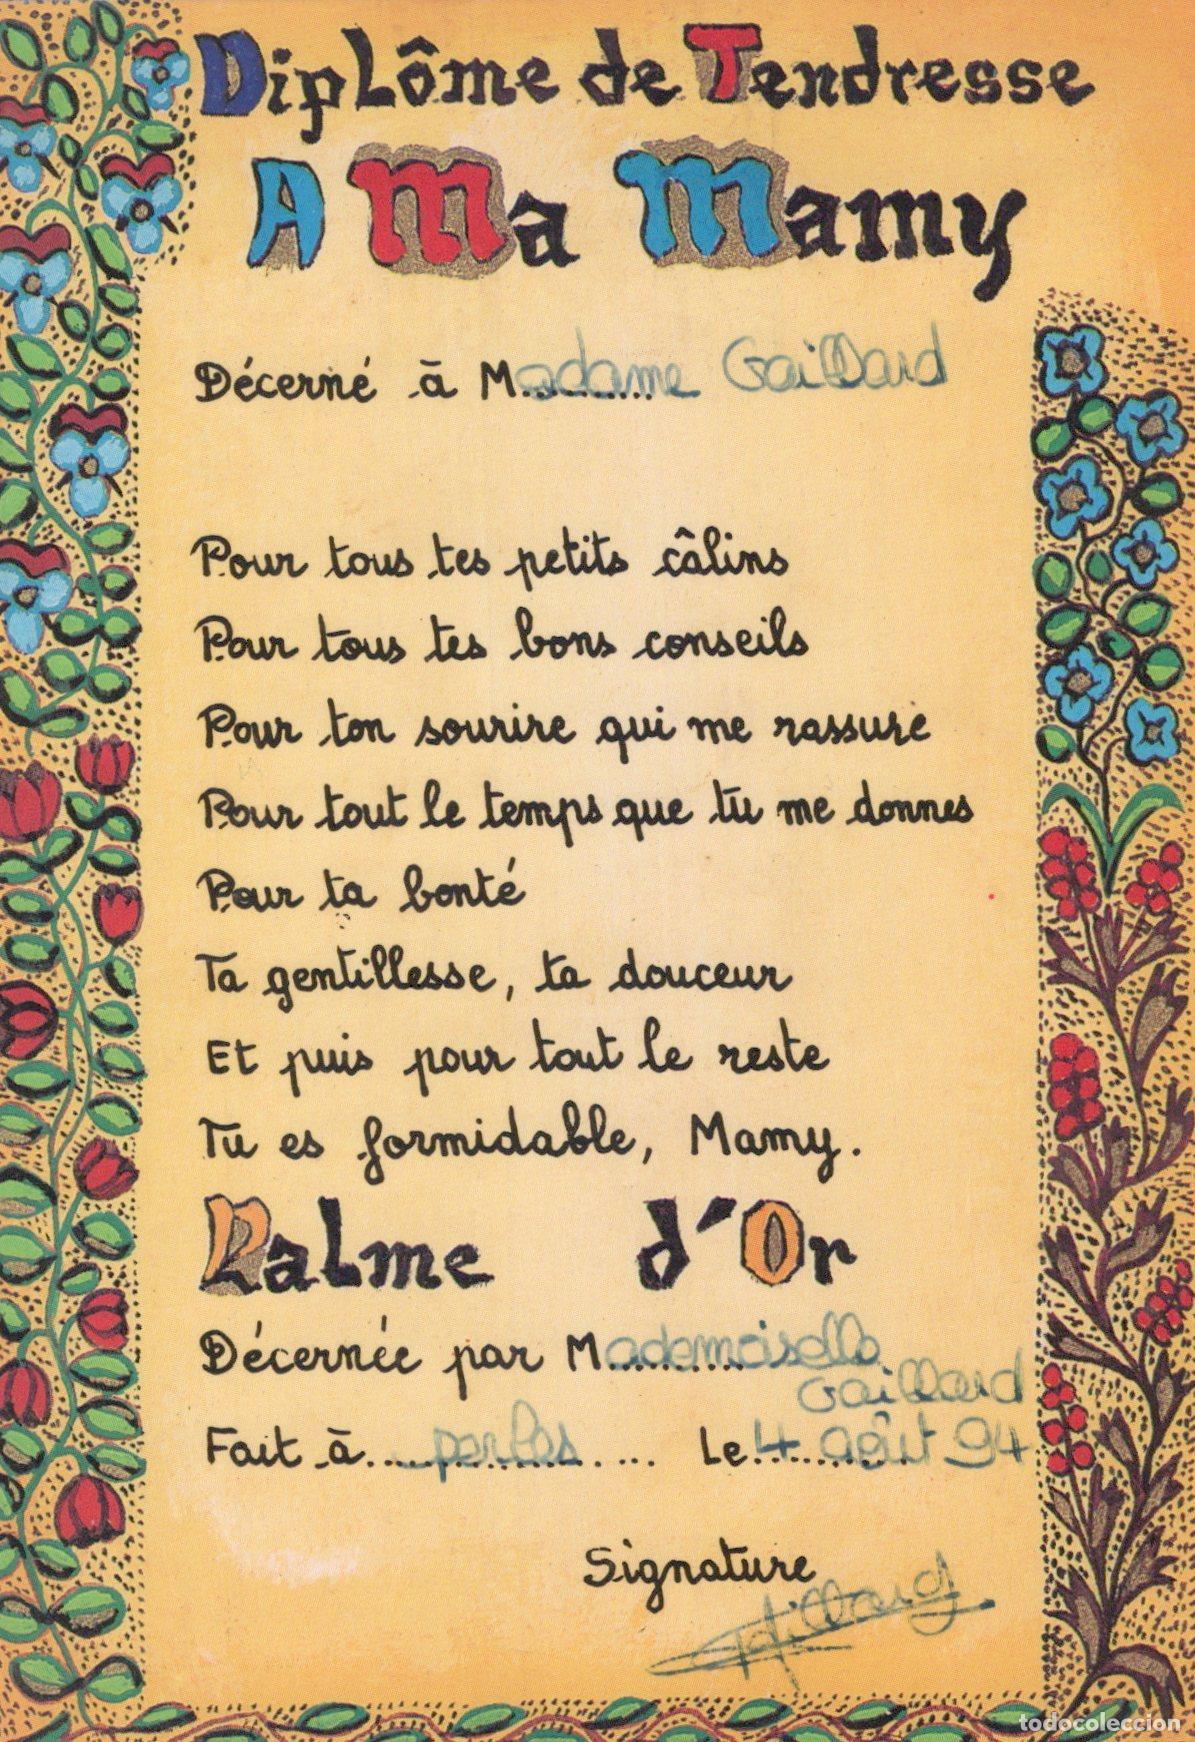 Diplôme de Tendresse
A Ma Mamy
Décerné à Madame Gaillard
Pour tous tes petits câlins
Pour tous tes bons conseils
Pour ton sourire qui me rassure
Pour tout le temps que tu me donnes
Pour ta bonté
Ta gentillesse, ta douceur
Et puis pour tout le reste
Tu es formidable, Mamy.
Palme d'Or
Décernée par Mademoiselle
Gaillard
Fait à.................... Le 4 août 94
Signature
Gaillard
todocoleccion